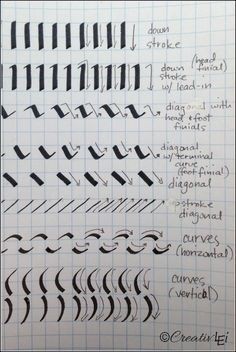 down
stroke
down (head
stroke finial)
w/ lead-in
diagonal with
head & foot
finials
diagonal
w/ terminal
curve
(foot finial)
diagonal
upstroke
diagonal
curves
(horizontal)
curves
(vertical)
©CreativLEi